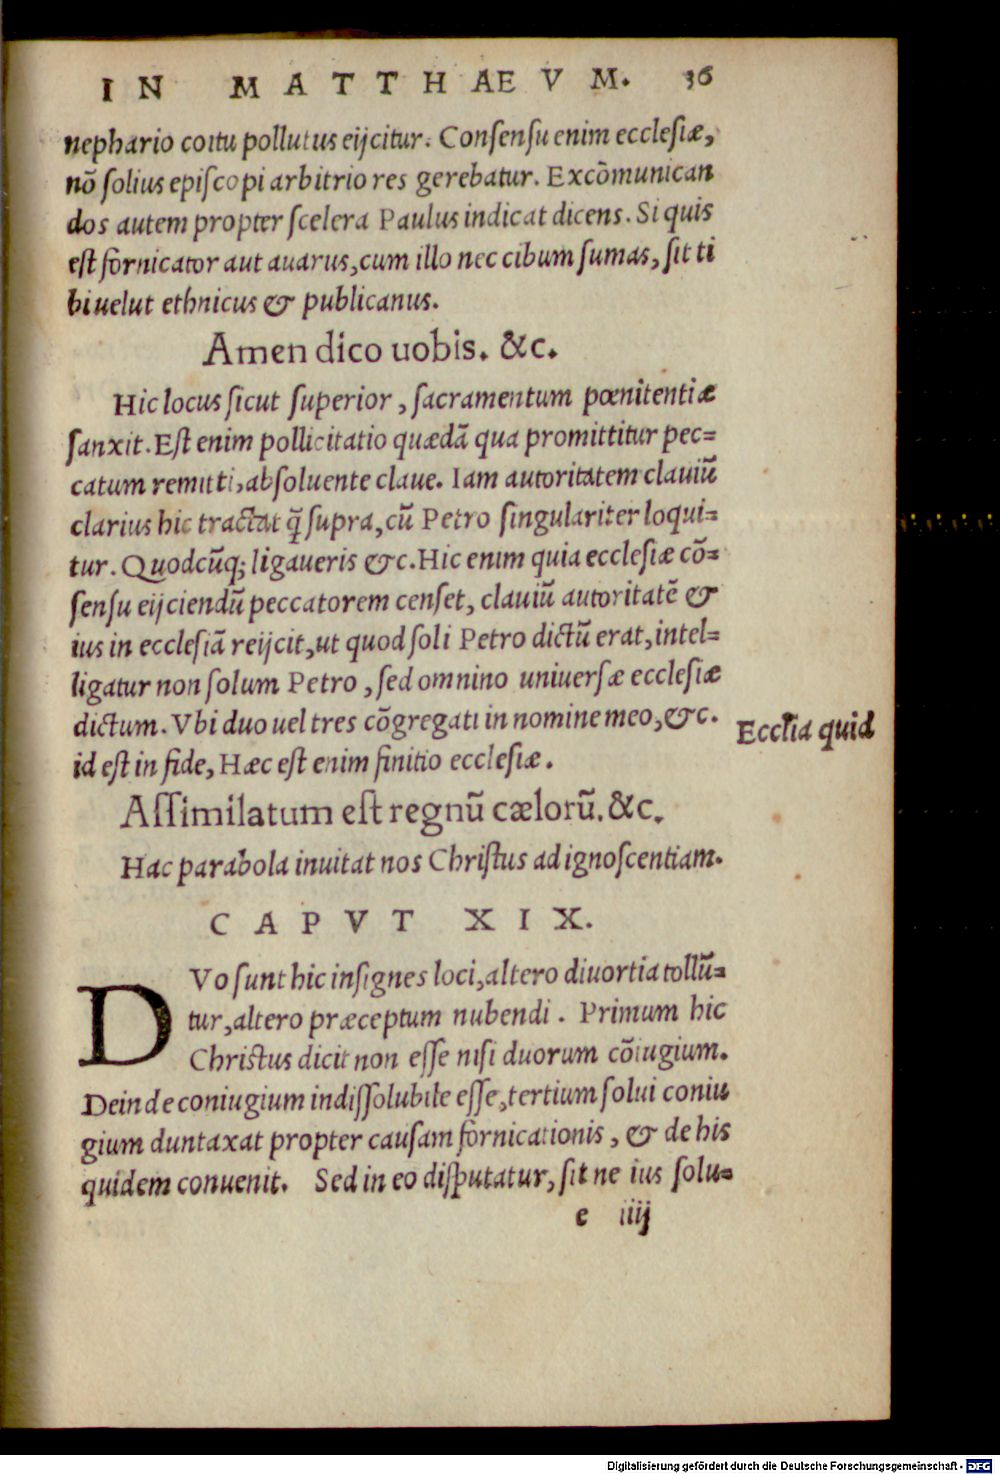 IN MATTHAEVM. 36
nephario coitu pollutus eijcitur. Consensu enim ecclesiæ,
nō solius episcopi arbitrio res gerebatur. Excōmunican
dos autem propter scelera Paulus indicat dicens. Si quis
est fornicator aut auarus, cum illo nec cibum sumas, sit ti
bi uelut ethnicus & publicanus.
Amen dico uobis. &c.
Hic locus sicut superior, sacramentum pœnitentiæ
sanxit. Est enim pollicitatio quædā qua promittitur pec=
catum remitti, absoluente claue. Iam autoritatem clauiū
clarius hic tractat q̄ supra, cū Petro singulariter loqui=
tur. Quodcūq; ligaueris &c. Hic enim quia ecclesiæ cō=
sensu eijciendū peccatorem censet, clauiū autoritatē &
ius in ecclesiā reijcit, ut quod soli Petro dictū erat, intel=
ligatur non solum Petro, sed omnino uniuersæ ecclesiæ
dictum. Vbi duo uel tres cōgregati in nomine meo, &c.
Ecclīa quid
id est in fide, Hæc est enim finitio ecclesiæ.
Assimilatum est regnū cælorū. &c.
Hac parabola inuitat nos Christus ad ignoscentiam.
CAPVT XIX.
DVo sunt hic insignes loci, altero diuortia tollū=
tur, altero præceptum nubendi. Primum hic
Christus dicit non esse nisi duorum cōiugium.
Dein de coniugium indissolubile esse, tertium solui coniu
gium duntaxat propter causam fornicationis, & de his
quidem conuenit. Sed in eo disputatur, sit ne ius solu=
e iiij
Digitalisierung gefördert durch die Deutsche Forschungsgemeinschaft - DFG